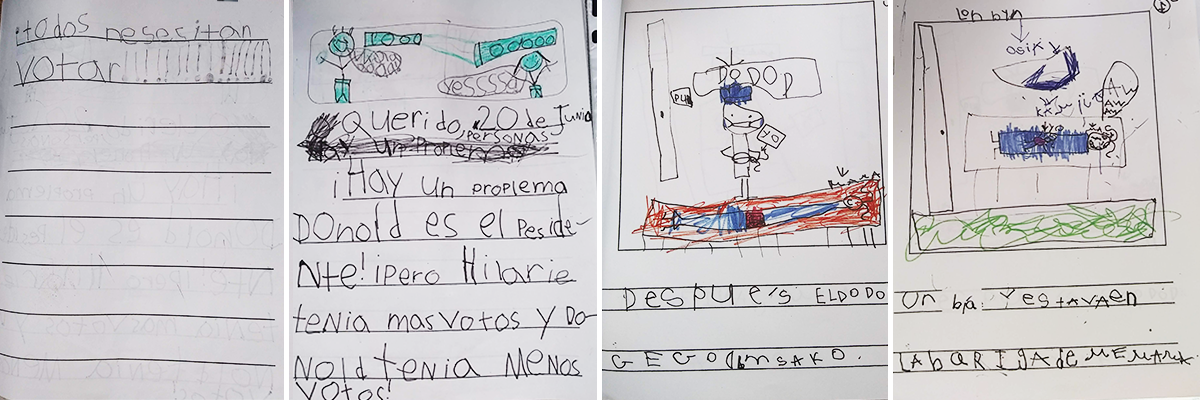 ¡todos nesesitan
votar
yesssss
Querido, 20 de Junio
personas
¡Hay un proplema
DOnold es el Peside-
Nte! ¡pero Hilarie
tenia mas votos y Do-
Nold tenia Menos
votos!
DODOD
YO
DesPue's ELDODO
GEGO
un bia yestavaen
LabaRIgademEmama